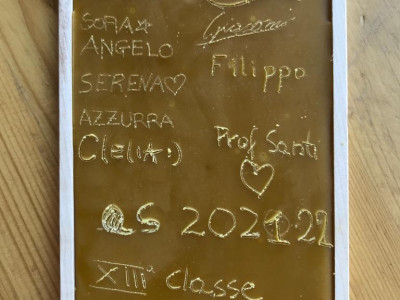 SOFIA☆
ANGELO
SERENA♡
AZZURRA
Clelia:)
Giacomo
Filippo
Prof Santi
♡
as 2021-22
XIIIª classe